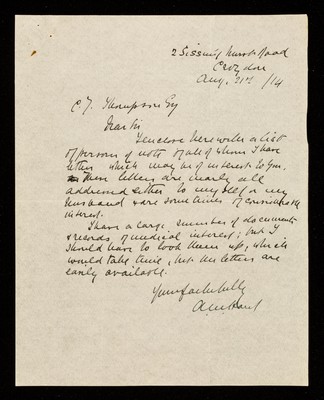 2 Sissinghurst Road
Croydon
Aug. 21st /14
C. J. Thompson Esq
Dear Sir
I enclose herewith a list
of persons of note of all of whom I have
letters which may be of interest to you.
These letters are nearly all
addressed either to myself or my
husband & are sometimes of considerable
interest.
I have a large number of documents
& records of medical interest; but I
should have to look them up, which
would take time, but the letters are
easily available.
Yours faithfully